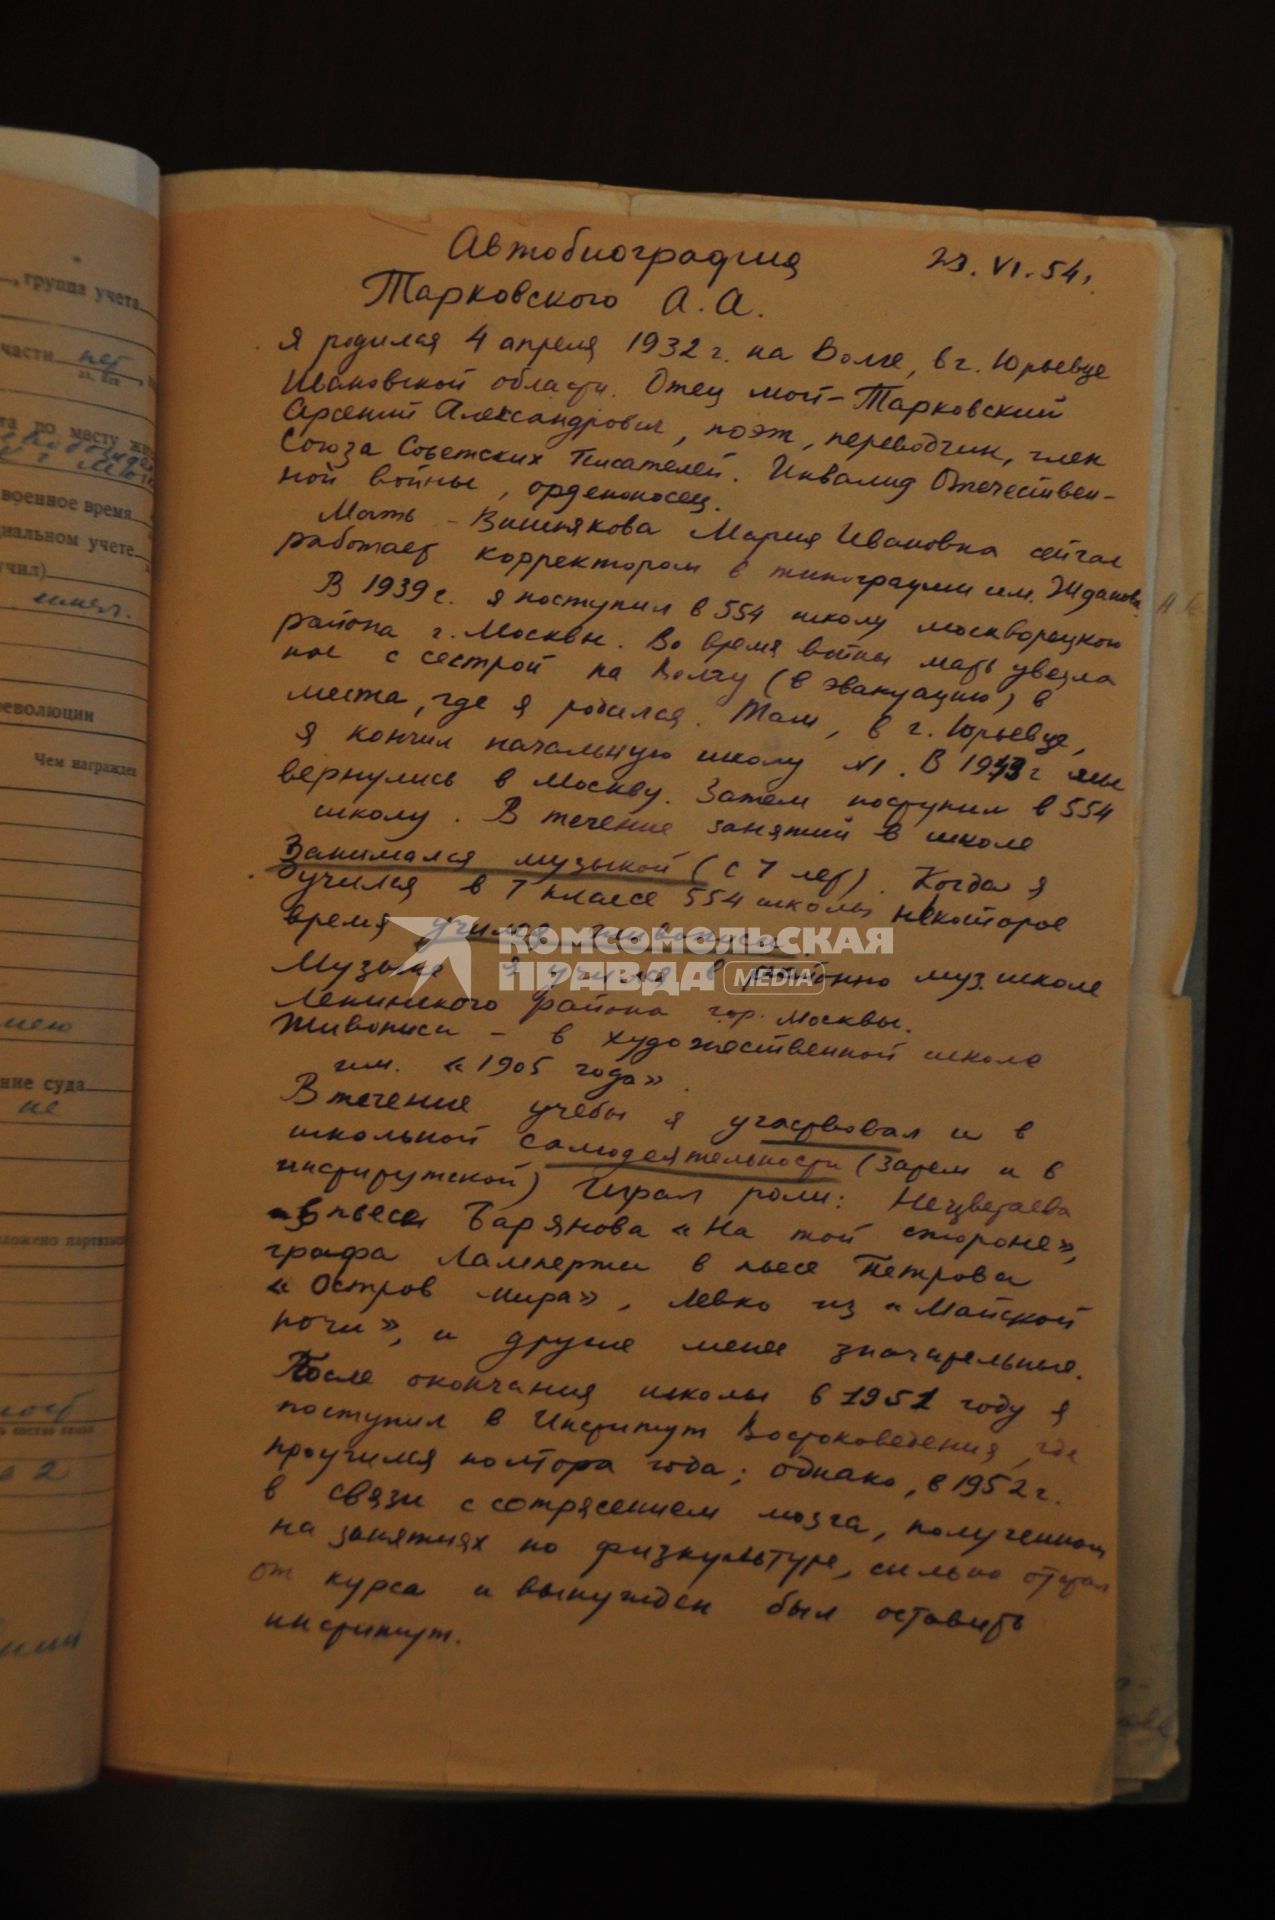 , группа учета
части нет
военное время
учете
учил)
имел.
революции
Чем награжден
имею
ние суда
не
2
Автобиография 23.VI.54.
Тарковского А.А.
Я родился 4 апреля 1932 г. на Волге, в г. Юрьевце
Ивановской области. Отец мой – Тарковский
Арсений Александрович, поэт, переводчик, член
Союза Советских Писателей. Инвалид Отечествен-
ной войны, орденоносец.
Мать – Вишнякова Мария Ивановна сейчас
работает корректором в типографии им. Жданова.
В 1939 г. я поступил в 554 школу москворецкого
района г. Москвы. Во время войны мать увезла
нас с сестрой на Волгу (в эвакуацию) в
места, где я родился. Там, в г. Юрьевце,
я кончил начальную школу №1. В 1943 г мы
вернулись в Москву. Затем поступил в 554
школу. В течение занятий в школе
занимался музыкой (с 7 лет). Когда я
учился в 7 классе 554 школы некоторое
время учился живописи.
Музыке я учился в районно муз. школе
Ленинского района гор. Москвы.
Живописи – в художественной школе
им. «1905 года».
В течение учебы я участвовал и в
школьной самодеятельности (затем и в
институтской) Играл роли: Нецветаева
в пьесе Барянова «На той стороне»,
графа Ламперти в пьесе Петрова
«Остров мира», Левко из «Майской
ночи», и другие менее значительные.
После окончания школы в 1951 году я
поступил в Институт Востоковедения, где
проучился полтора года; однако, в 1952 г.
в связи с сотрясением мозга, полученном
на занятиях по физкультуре, сильно отстал
от курса и вынужден был оставить
институт.
КОМСОМОЛЬСКАЯ
ПРАВДА MEDIA